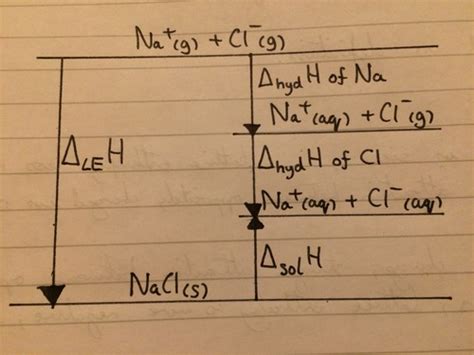 Na⁺(g) + Cl⁻(g)
Δhyd H of Na
Na⁺(aq) + Cl⁻(g)
ΔLE H
Δhyd H of Cl
Na⁺(aq) + Cl⁻(aq)
Δsol H
NaCl(s)